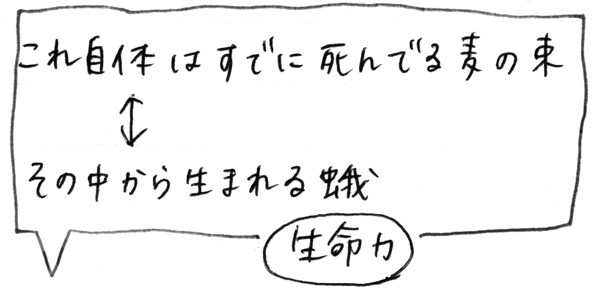 これ自体はすでに死んでる麦の束
↕
その中から生まれる蛾
生命力